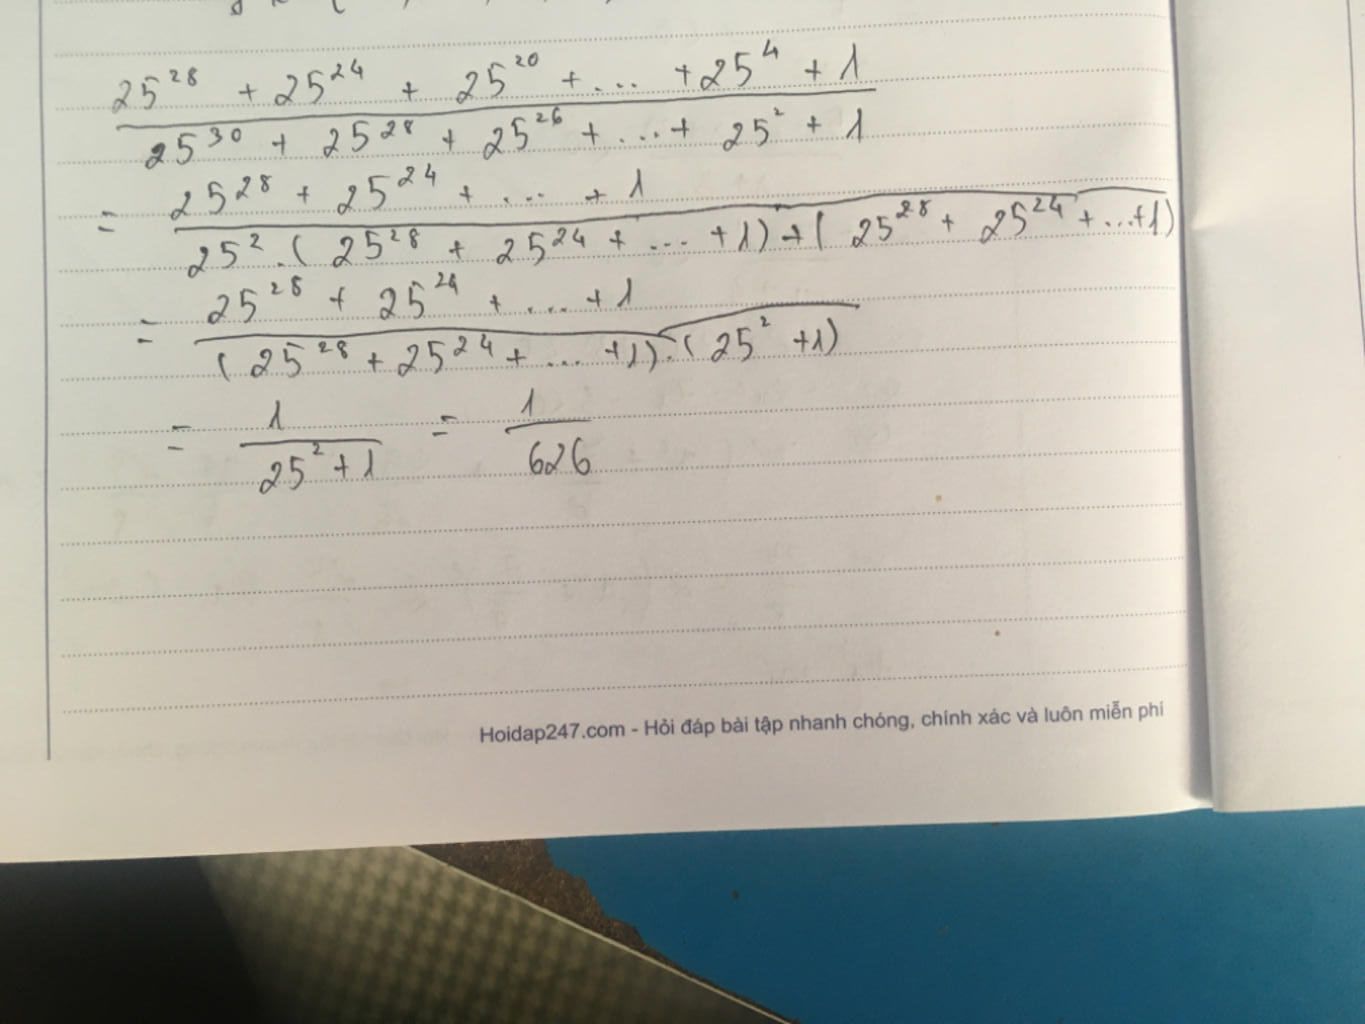 25²⁸ + 25²⁴ + 25²⁰ + ... + 25⁴ + 1
25³⁰ + 25²⁸ + 25²⁶ + ... + 25² + 1
= 25²⁸ + 25²⁴ + ... + 1
25² . ( 25²⁸ + 25²⁴ + ... + 1) + ( 25²⁸ + 25²⁴ + ... + 1)
= 25²⁸ + 25²⁴ + ... + 1
( 25²⁸ + 25²⁴ + ... + 1) . ( 25² + 1)
= 1 = 1
25² + 1 626
Hoidap247.com - Hỏi đáp bài tập nhanh chóng, chính xác và luôn miễn phí